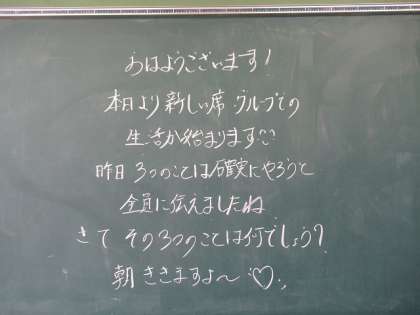 おはようございます!
本日より新しい席・グループでの
生活が始まります♡
昨日 3つのことは確実にやろうと
全員に伝えましたね
さて その3つのことは何でしょう?
朝 ききますよ〜♡